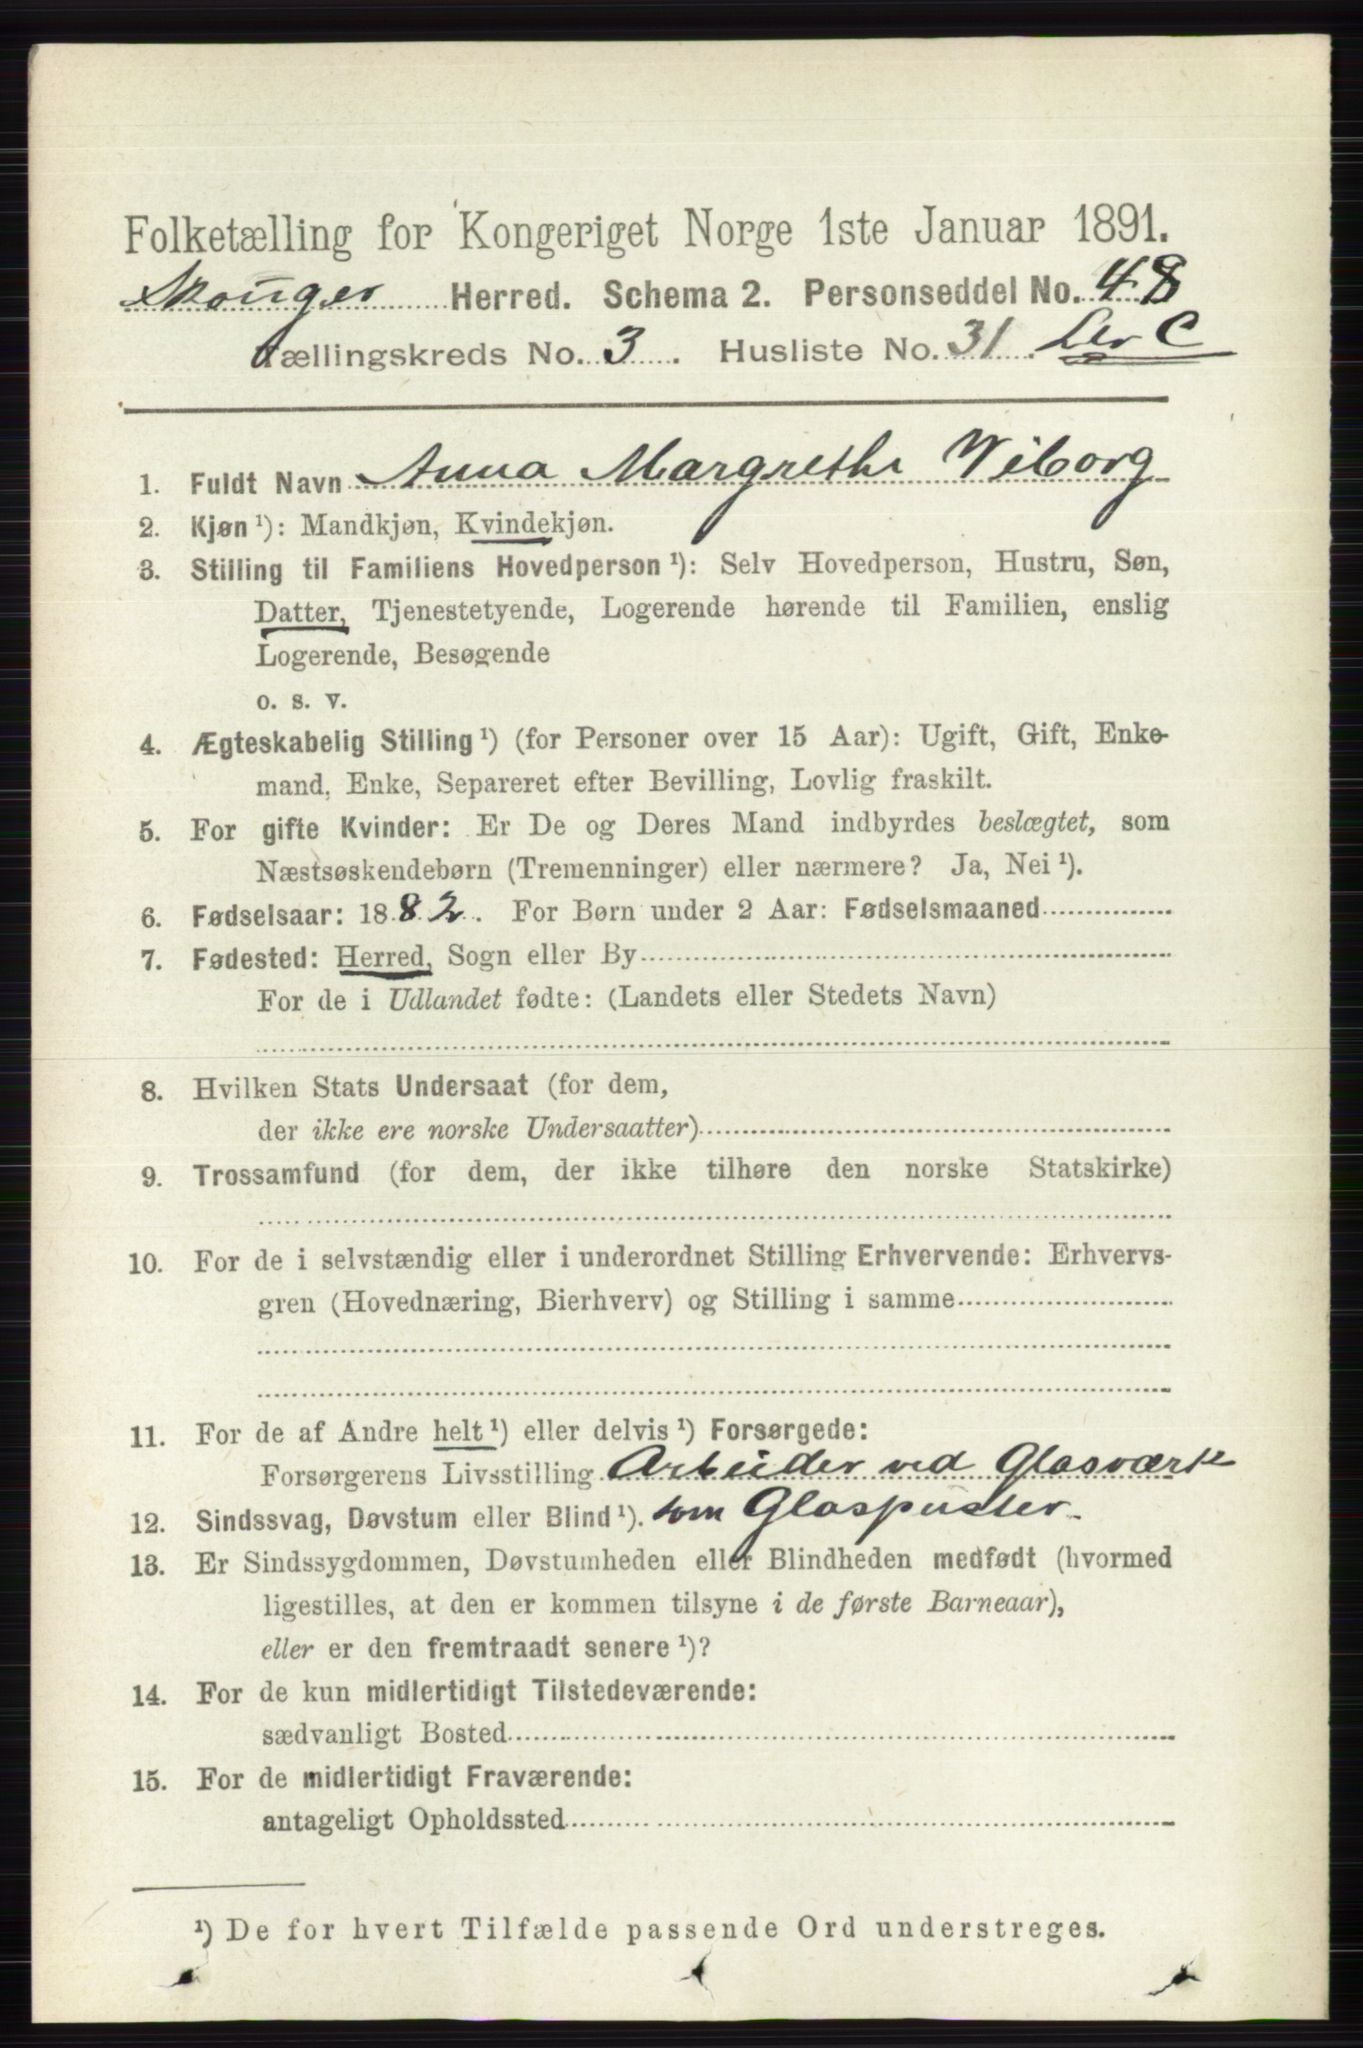 Folketælling for Kongeriget Norge 1ste Januar 1891.
Skouger Herred. Schema 2. Personseddel No. 48
Tællingskreds No. 3. Husliste No. 31. Ler C
1. Fuldt Navn Anna Margrethe Viborg
2. Kjøn ¹): Mandkjøn, Kvindekjøn.
3. Stilling til Familiens Hovedperson ¹): Selv Hovedperson, Hustru, Søn,
Datter, Tjenestetyende, Logerende hørende til Familien, enslig
Logerende, Besøgende
o. s. v.
4. Ægteskabelig Stilling ¹) (for Personer over 15 Aar): Ugift, Gift, Enke-
mand, Enke, Separeret efter Bevilling, Lovlig fraskilt.
5. For gifte Kvinder: Er De og Deres Mand indbyrdes beslægtet, som
Næstsøskendebørn (Tremenninger) eller nærmere? Ja, Nei ¹).
6. Fødselsaar: 1882. For Børn under 2 Aar: Fødselsmaaned
7. Fødested: Herred, Sogn eller By
For de i Udlandet fødte: (Landets eller Stedets Navn)
8. Hvilken Stats Undersaat (for dem,
der ikke ere norske Undersaatter)
9. Trossamfund (for dem, der ikke tilhøre den norske Statskirke)
10. For de i selvstændig eller i underordnet Stilling Erhvervende: Erhvervs-
gren (Hovednæring, Bierhverv) og Stilling i samme
11. For de af Andre helt ¹) eller delvis ¹) Forsørgede:
Forsørgerens Livsstilling Arbeider ved Glasværk
12. Sindssvag, Døvstum eller Blind ¹). som Glaspuster.
13. Er Sindssygdommen, Døvstumheden eller Blindheden medfødt (hvormed
ligestilles, at den er kommen tilsyne i de første Barneaar),
eller er den fremtraadt senere ¹)?
14. For de kun midlertidigt Tilstedeværende:
sædvanligt Bosted
15. For de midlertidigt Fraværende:
antageligt Opholdssted
¹) De for hvert Tilfælde passende Ord understreges.